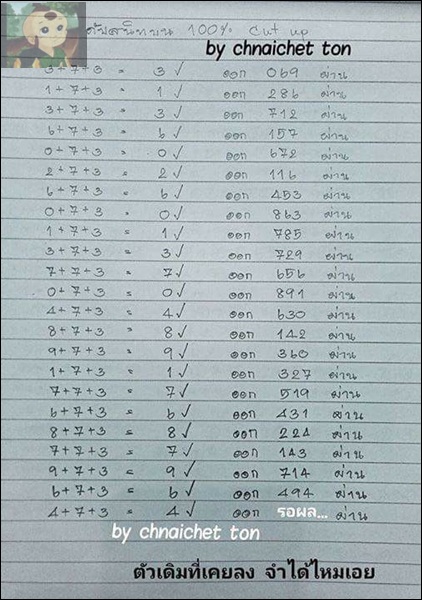 ดับสนิทบน 100% Cut up
by chnaichet ton
3+7+3 = 3 ✓ ออก 069 ผ่าน
1+7+3 = 1 ✓ ออก 286 ผ่าน
3+7+3 = 3 ✓ ออก 712 ผ่าน
6+7+3 = 6 ✓ ออก 157 ผ่าน
0+7+3 = 0 ✓ ออก 672 ผ่าน
2+7+3 = 2 ✓ ออก 116 ผ่าน
6+7+3 = 6 ✓ ออก 453 ผ่าน
0+7+3 = 0 ✓ ออก 863 ผ่าน
1+7+3 = 1 ✓ ออก 785 ผ่าน
3+7+3 = 3 ✓ ออก 729 ผ่าน
7+7+3 = 7 ✓ ออก 656 ผ่าน
0+7+3 = 0 ✓ ออก 891 ผ่าน
4+7+3 = 4 ✓ ออก 630 ผ่าน
8+7+3 = 8 ✓ ออก 142 ผ่าน
9+7+3 = 9 ✓ ออก 360 ผ่าน
1+7+3 = 1 ✓ ออก 327 ผ่าน
7+7+3 = 7 ✓ ออก 519 ผ่าน
6+7+3 = 6 ✓ ออก 431 ผ่าน
8+7+3 = 8 ✓ ออก 224 ผ่าน
7+7+3 = 7 ✓ ออก 143 ผ่าน
9+7+3 = 9 ✓ ออก 714 ผ่าน
6+7+3 = 6 ✓ ออก 494 ผ่าน
4+7+3 = 4 ✓ ออก รอผล... ผ่าน
by chnaichet ton
ตัวเดิมที่เคยลง จำได้ไหมเอย